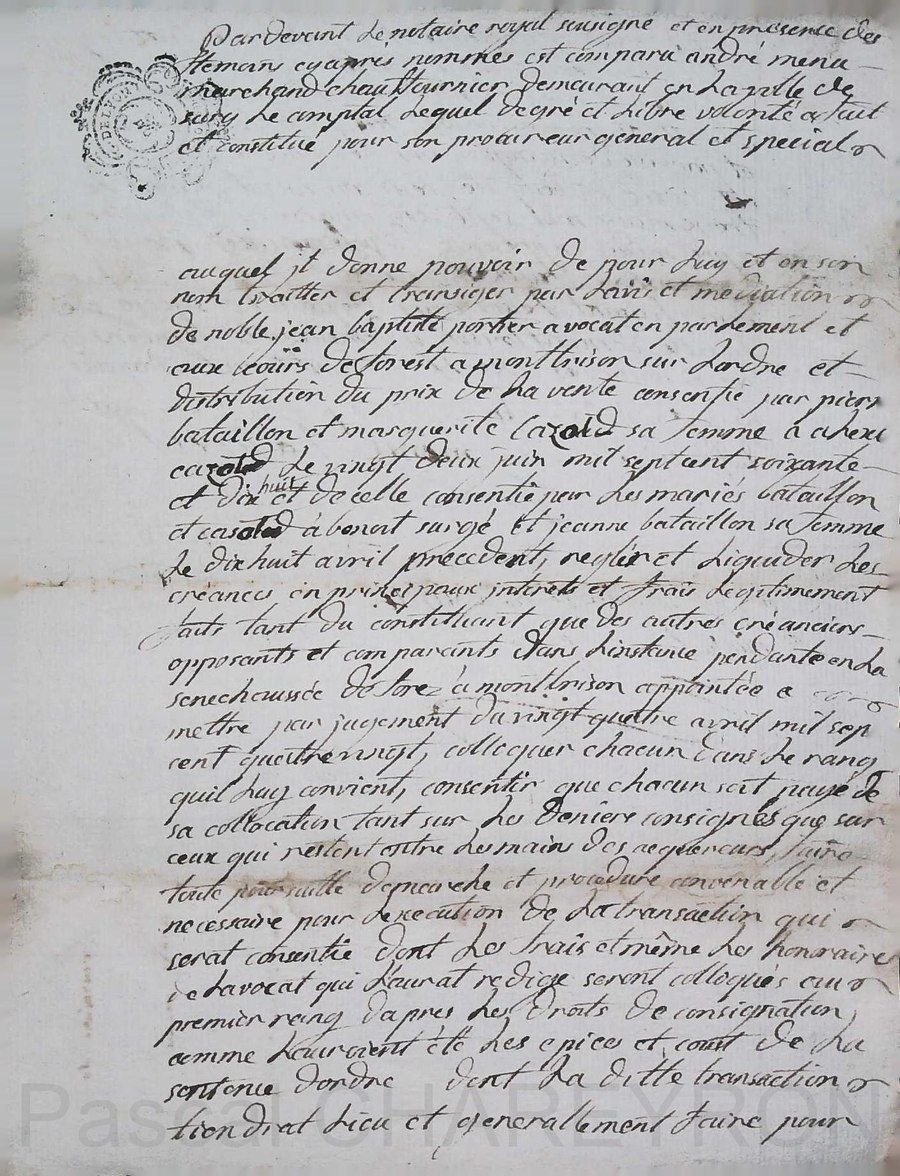 DE LYON
Pardevant le notaire royal sousigné et en presence des
temoins cy après nommés est comparu andré menu
marchand chauffournier demeurant en la ville de
sury le comptal lequel de gré et libre volonté a fait
et constitué pour son procureur general et special
auquel il donne pouvoir de pour luy et en son
nom traitter et transiger par lavis et mediation
de noble jean baptiste portier avocat en parlement et
aux cours de forest a montbrison sur lordre et
distribution du prix de la vente consentie par pierre
bataillon et marguerite cazold sa femme a
cazold le vingt deux juin mil sept cent soixante
et dix huit et de celle consentie par les mariés bataillon
et casold à benoit surgé et jeanne bataillon sa femme
le dix huit avril precedent, regler et liquider les
créances en principaux interets et frais legitimement
faits tant du constituant que des autres créanciers
opposants et comparants dans linstance pendante en la
senechaussée de forez à montbrison appointée a
mettre par jugement du vingt quatre avril mil sept
cent quatre vingt, colloquer chacun dans le rang
quil luy convient, consentir que chacun soit payé de
sa collocation tant sur les deniers consignés que sur
ceux qui restent entre les mains des acquereurs, faire
toute poursuitte demarche et procedure convenable et
necessaire pour lexecution de la transaction qui
serat consentie dont les frais et même les honoraires
de lavocat qui laurat redigé seront colloqués au
premier rang dapres les droits de consignation,
comme lauroient été les epices et cout de la
sentence dordre dont la ditte transaction
tiendrat lieu et generallement faire pour
Pascal CHAREYRON